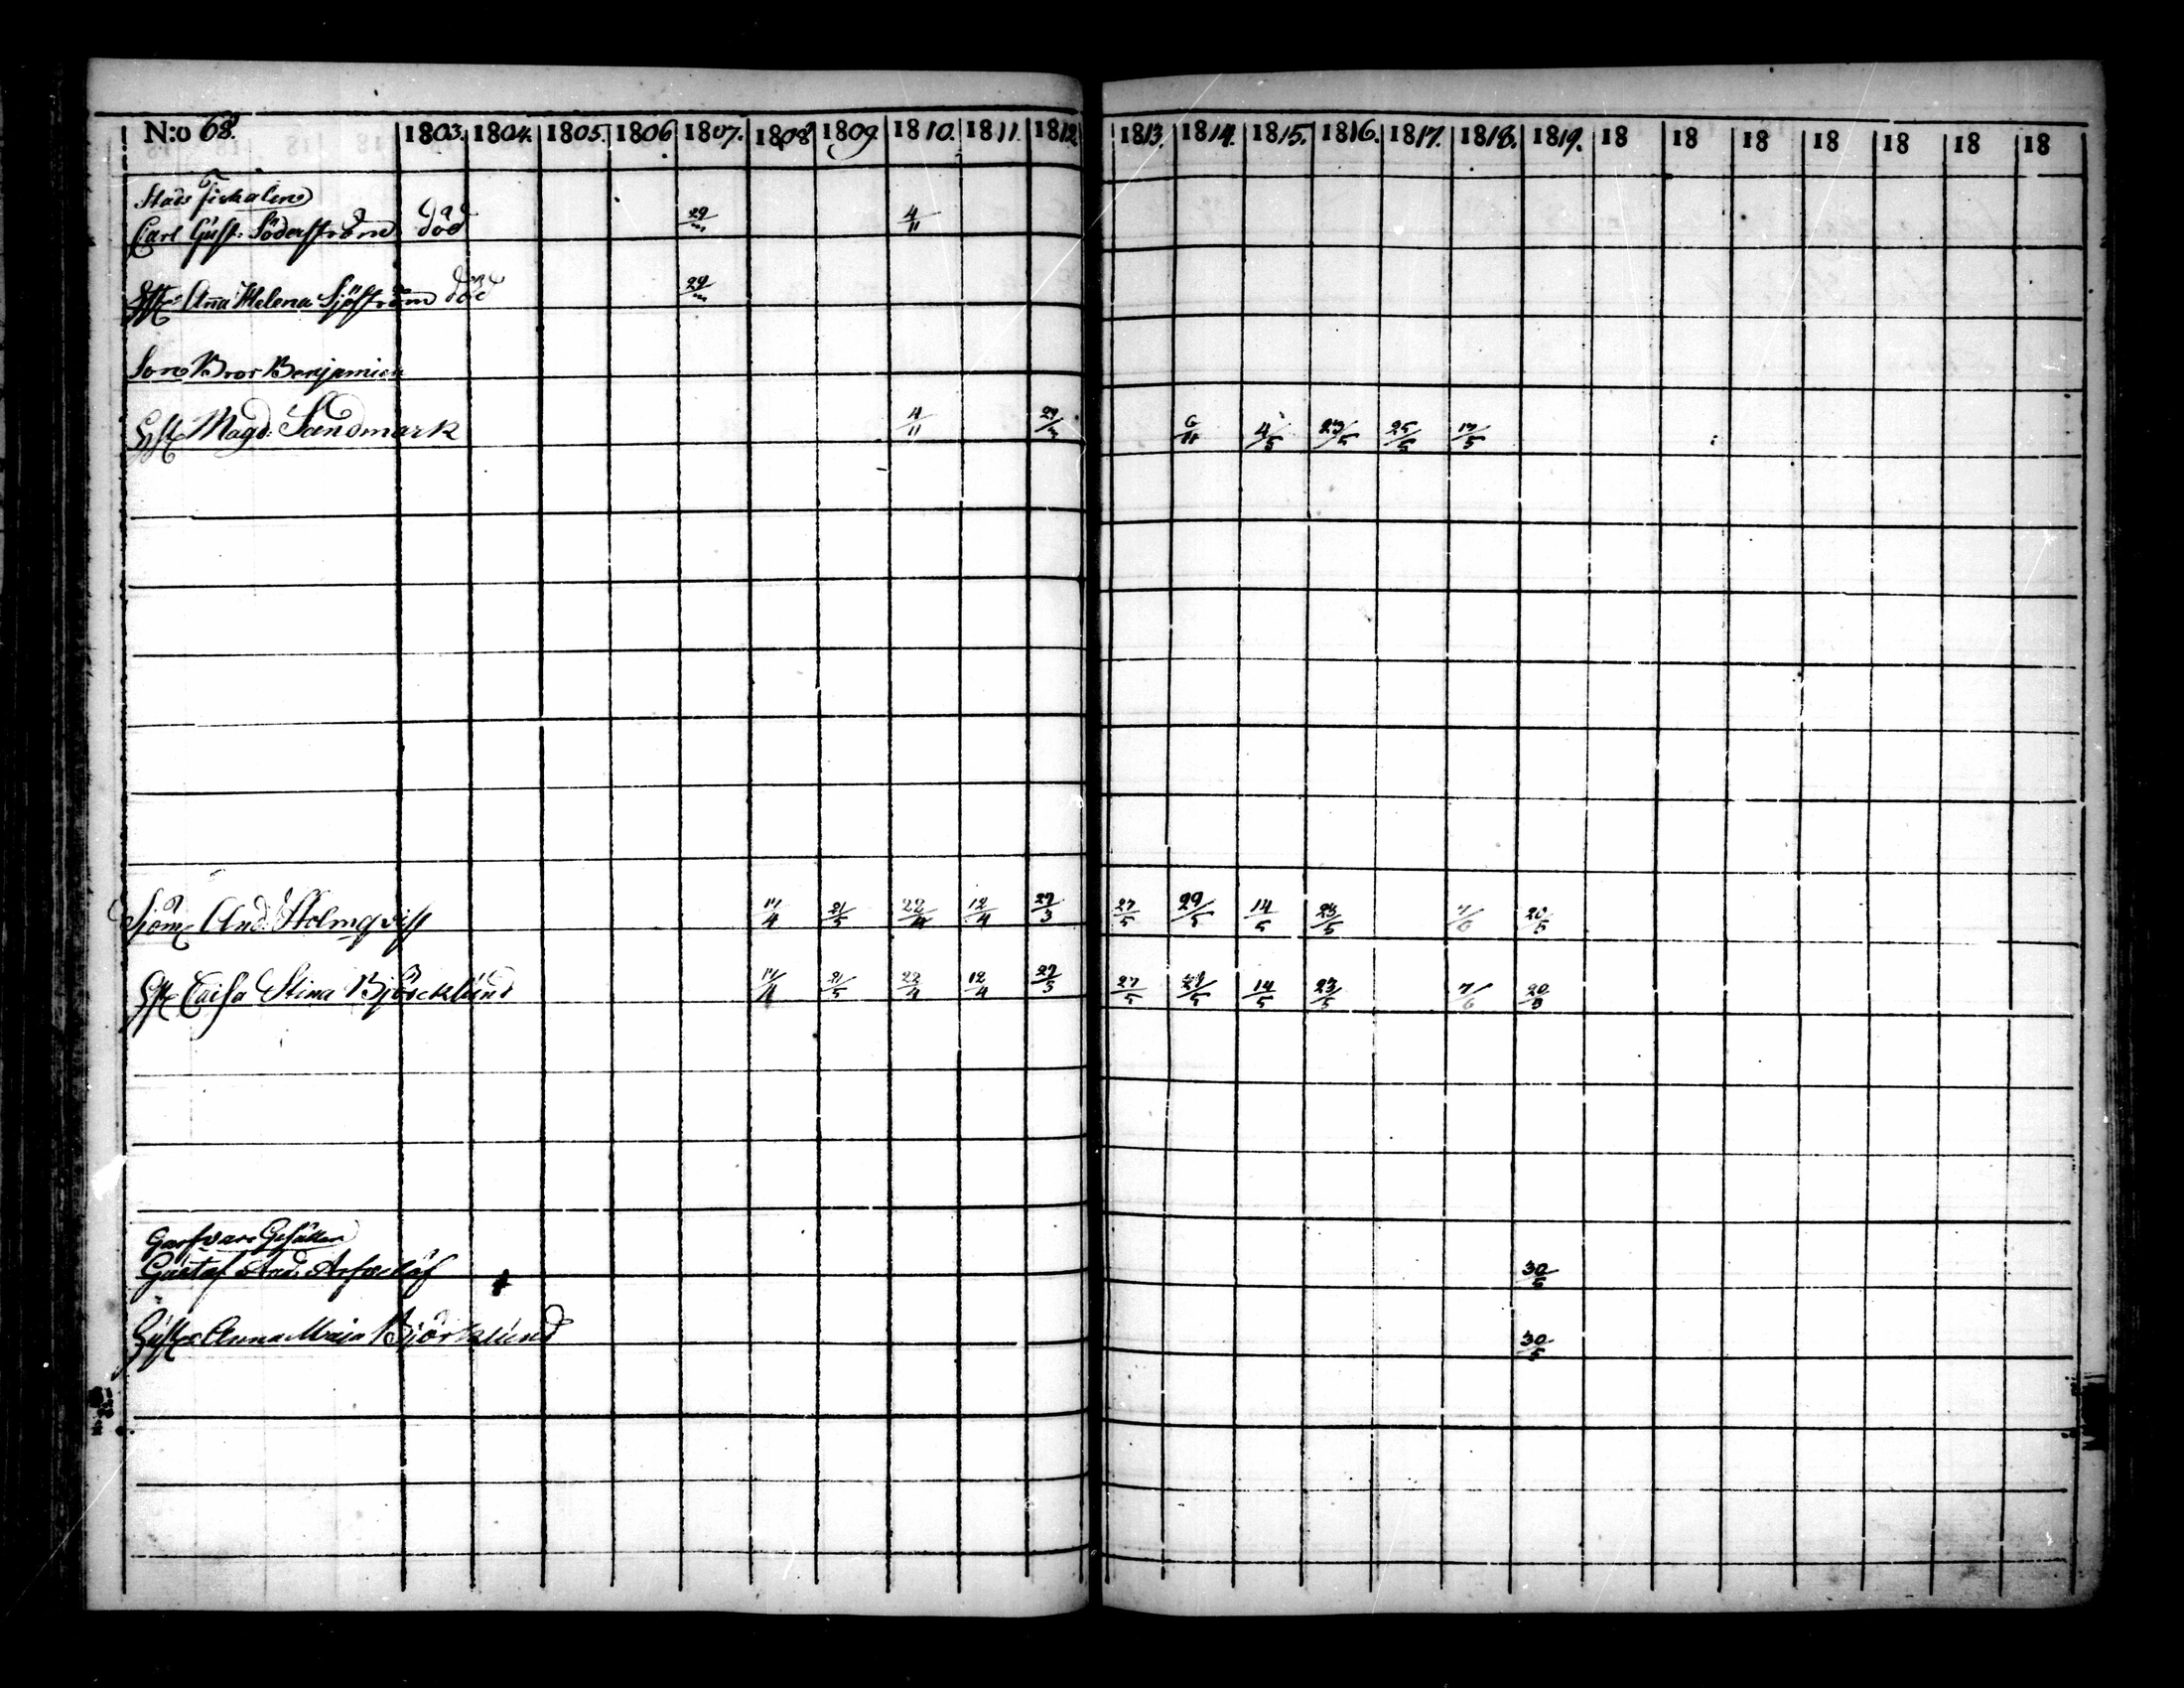 N:o 68. 1803. 1804. 1805. 1806 1807. 1808 1809. 1810. 1811. 1812 1813. 1814. 1815. 1816. 1817. 1818. 1819. 18 18 18 18 18 18 18
Stads Fiskalen
Carl Gust: Söderström död 29/m 4/11
Anna Helena Sjöström död 29/m
Son Bror Benjamin
Hust Magd: Sandmark 4/11 6/11 4/5 29/5 25/5 17/5
Sjöm And: Holmqvist 17/4 21/5 22/4 12/4 27/3 27/5 29/5 14/5 23/5 7/6 20/5
Caisa Stina Björcklund 17/4 21/5 22/4 12/4 27/3 27/5 29/5 14/5 23/5 7/6 20/5
Garfvare Gesällen
Gustaf And: 30/5
Hust Anna Maja Björklund 30/5